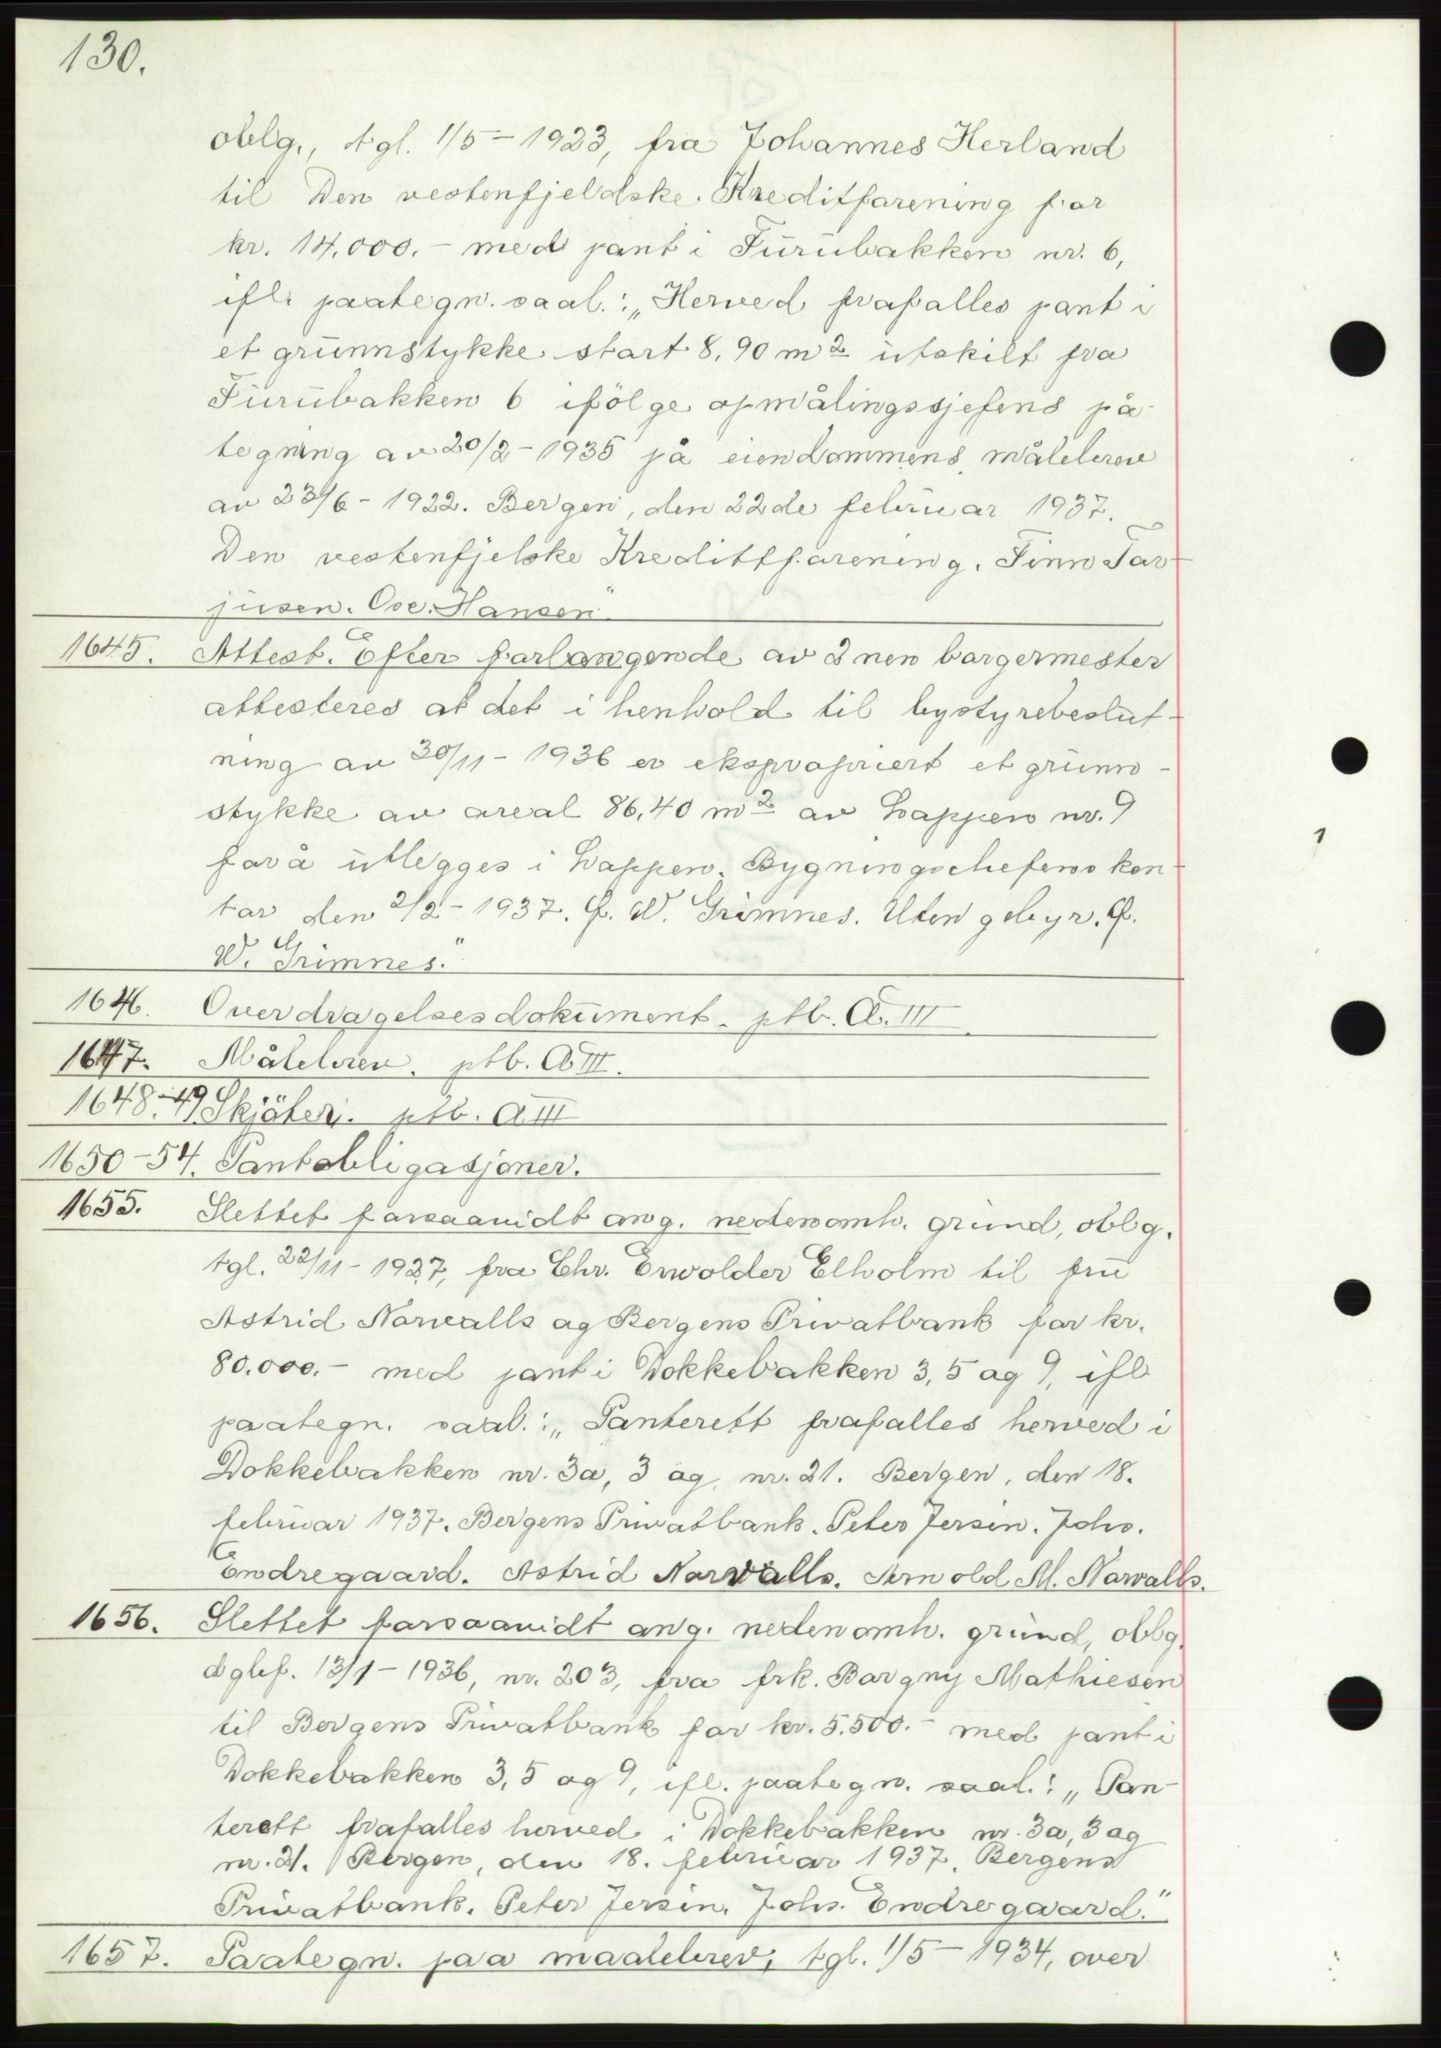 130.
oblg., tgl. 1/5 - 1923, fra Johannes Herland
til Den vestenfjeldske. Kreditforening for
kr. 14.000.- med pant i Furubakken nr. 6,
ifl. paategn. saal.: „Herved frafalles pant i
et grunnstykke stort 8,90 m2 utskilt fra
Furubakken 6 ifölge opmålingssjefens på-
tegning av 20/2 - 1935 på eiendommens målebrev
av 23/6 - 1922. Bergen, den 22de februar 1937.
Den vestenfjelske Kredittforening. Finn Tor-
jusen. Osc. Hansen"
1645. Attest. Efter forlangende av 2nen borgermester
attesteres at det i henhold til bystyrebeslut-
ning av 30/11 - 1936 er ekspropriert et grunn-
stykke av areal 86,40 m2 av Lappen nr. 9
for å utlegges i Lappen. Bygningschefens kon-
tor den 2/2 - 1937. W. Grimnes. Uten gebyr.
W. Grimnes."
1646. Overdragelsesdokument. ptb. A. III.
1647. Målebrev. ptb. A III.
1648.-49. Skjöter. ptb. A III
1650-54. Pantobligasjoner.
1655. Slettet forsaavidt ang. nedenomh. grund, oblg.
tgl. 22/11 - 1927, fra Chr. Erwolder Elholm til fru
Astrid Norvalls og Bergens Privatbank for kr.
80.000.- med pant i Dokkebakken 3, 5 og 9, ifl
paategn. saal.: „Panterett frafalles herved i
Dokkebakken nr. 3a, 3 og nr. 21. Bergen, den 18.
februar 1937. Bergens Privatbank. Peter Jersin. Johs.
Endregaard. Astrid Norvalls. Arnold M. Norvalls.
1656. Slettet forsaavidt ang. nedenomh. grund, oblg.
dglf. 13/1 - 1936, nr. 203, fra frk. Borgny Mathiesen
til Bergens Privatbank for kr. 5.500.- med pant i
Dokkebakken 3, 5 og 9, ifl. paategn. saal.: „Pan-
terett frafalles herved i Dokkebakken nr. 3a, 3 og
nr. 21. Bergen, den 18. februar 1937. Bergens
Privatbank. Peter Jersin. Johs. Endregaard."
1657. Paategn. paa maalebrev, tgl. 1/5 - 1934, over